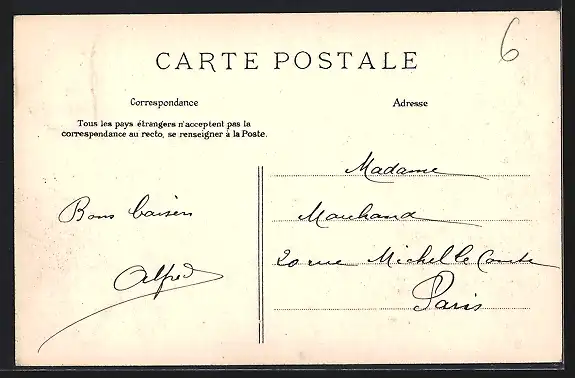 6
CARTE POSTALE
Correspondance
Adresse
Tous les pays étrangers n'acceptent pas la
correspondance au recto, se renseigner à la Poste.
Bons baisers
Alfred
Madame
Marchand
20 rue Michel le Comte
Paris